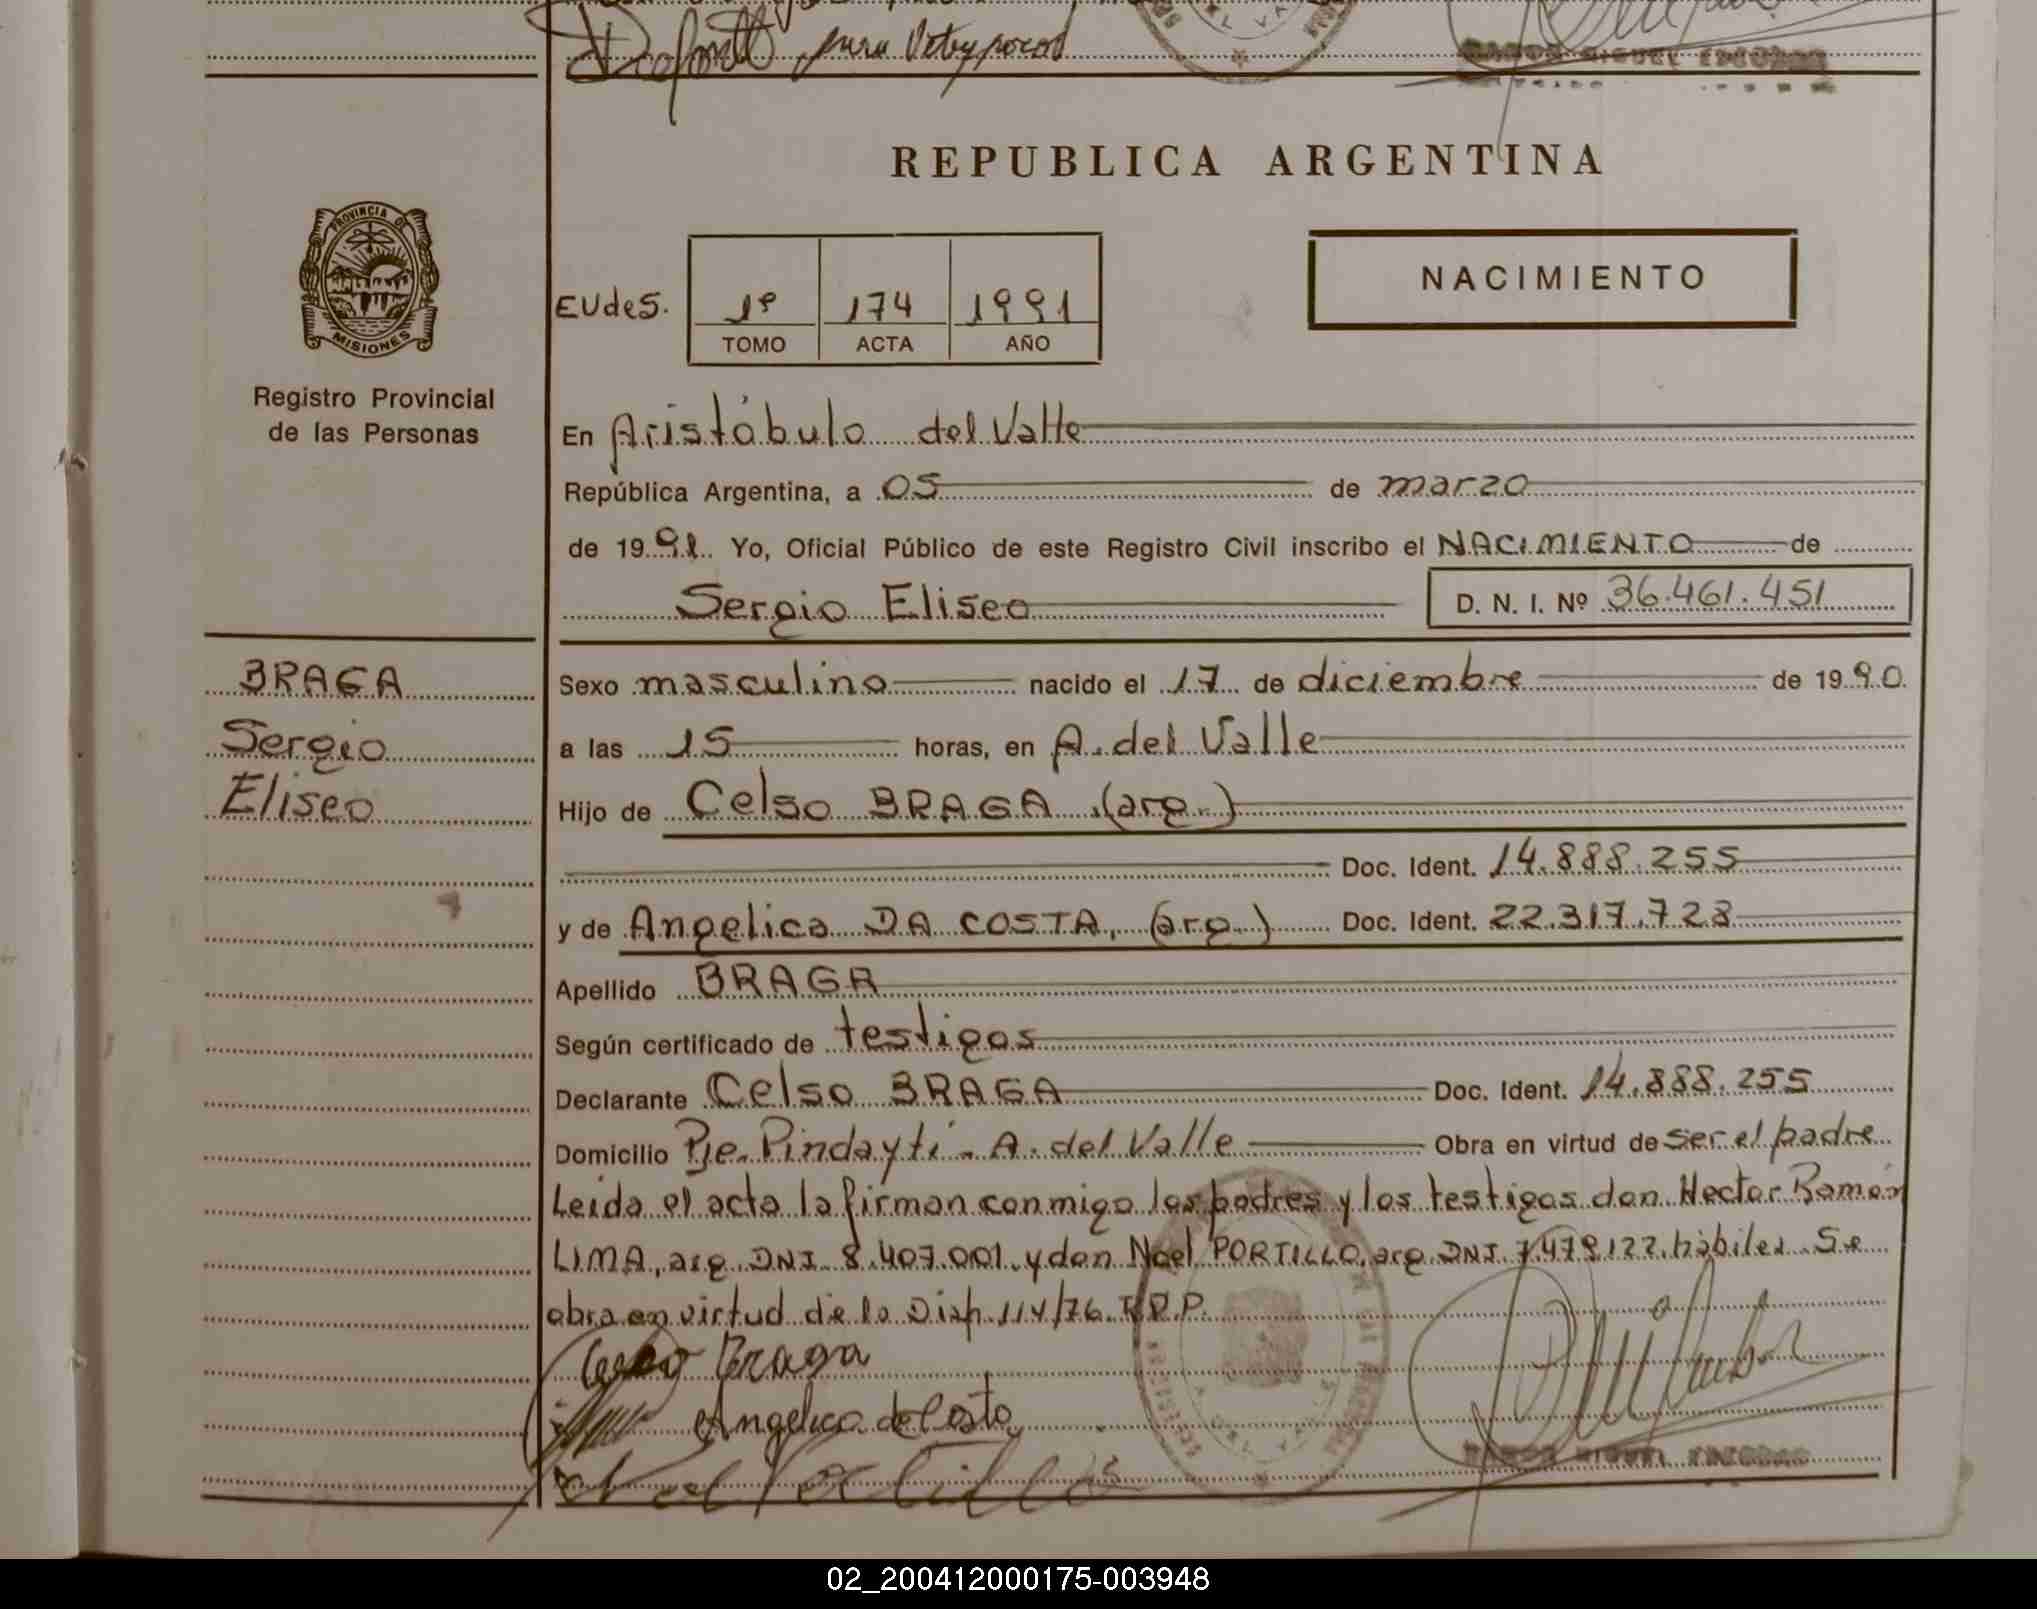 para
RAMON MIGUEL ESCOBAR
REPUBLICA ARGENTINA
PROVINCIA DE
MISIONES
Registro Provincial
de las Personas
NACIMIENTO
EUdeS. 1º 174 1991
TOMO ACTA AÑO
En Aristóbulo del Valle
República Argentina, a 05 de marzo
de 1991. Yo, Oficial Público de este Registro Civil inscribo el NACIMIENTO de
Sergio Eliseo D. N. I. Nº 36.461.451
BRAGA
Sergio
Eliseo
Sexo masculino nacido el 17 de diciembre de 1990.
a las 15 horas, en A. del Valle
Hijo de Celso BRAGA, (arg.)
Doc. Ident. 14.888.255
y de Angelica DA COSTA, (arg.) Doc. Ident. 22.317.728
Apellido BRAGA
Según certificado de testigos
Declarante Celso BRAGA Doc. Ident. 14.888.255
Domicilio Pje. Pindaytí - A. del Valle Obra en virtud de ser el padre
Leida el acta la firman conmigo los padres y los testigos don Hector Ramón
LIMA, arg. DNI. 8.407.001. y don Noel PORTILLO, arg. DNI. 7.479.122. hábiles. Se
obra en virtud de la Disp. 114/76. R.P.P.
Celso Braga
Angelica de Costa
Noel Portillo
RAMON MIGUEL ESCOBAR
02_200412000175-003948